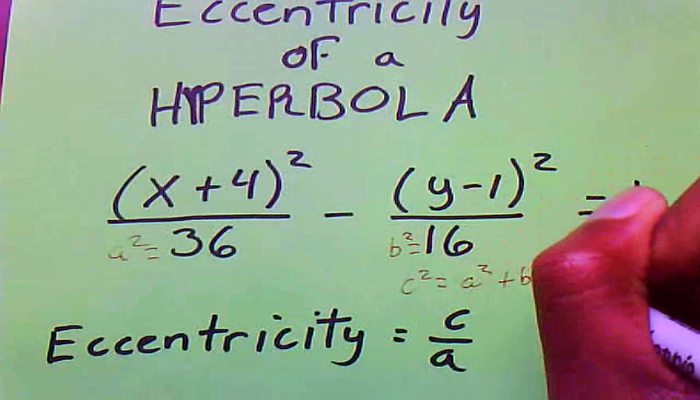 Eccentricity
OF a
HYPERBOLA
(x+4)² - (y-1)² =
a²= 36 b²= 16
c² = a² + b
Eccentricity = c
a